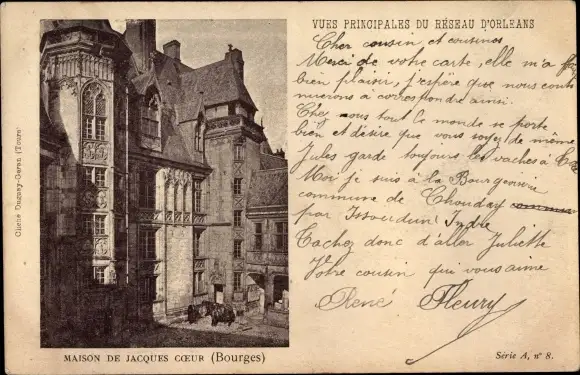 VUES PRINCIPALES DU RÉSEAU D'ORLEANS
Cher cousin et cousines
Merci de votre carte, elle m'a fait
bien plaisir, j'espère que nous conti
nuerons à correspondre ainsi.
Chez nous tout le monde se porte
bien et désire que vous soyez de même
Jules garde toujours les vaches à
Moi je suis à la Bourgeoiserie
commune de Chouday
par Issoudun Indre
Tachez donc d'aller Juliette
Votre cousin qui vous aime
René Fleury
Cliché Dugnay-Geran (Tours)
MAISON DE JACQUES CŒUR (Bourges)
Série A, n° 8.